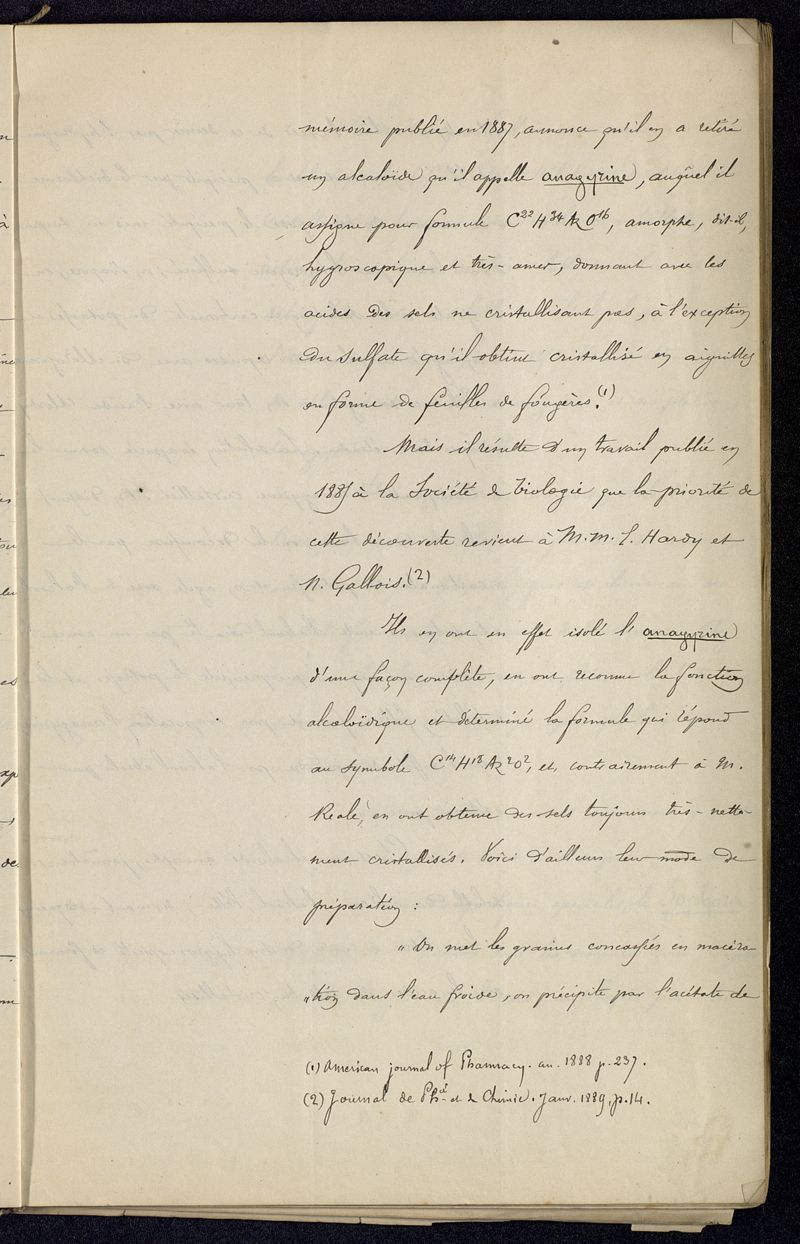 mémoire publié en 1887, annonce qu'il en a retiré
un alcaloïde qu'il appelle anagyrine, auquel il
assigne pour formule C²²H³⁴AzO¹⁶, amorphe, dit-il,
hygroscopique et très-amer, donnant avec les
acides des sels ne cristallisant pas, à l'exception
du sulfate qu'il obtint cristallisé en aiguilles
en forme de feuilles de fougères.(1)
Mais il résulte d'un travail publié en
1885 à la Société de biologie que la priorité de
cette découverte revient à M.M. E. Hardy et
N. Gallois.(2)
Ils en ont en effet isolé l'anagyrine
d'une façon complète, en ont reconnu la fonction
alcaloïdique et déterminé la formule qui répond
au symbole C¹⁴H¹⁸Az²O², et, contrairement à M.
Reale, en ont obtenu des sels toujours très-nette-
ment cristallisés. Voici d'ailleurs leur mode de
préparation :
" On met les graines concassées en macéra-
" tion dans l'eau froide, on précipite par l'acétate de
(1) American journal of Pharmacy. an. 1888 p. 237.
(2) Journal de Phⁱᵉ et de Chimie. Janv. 1889, p. 14.